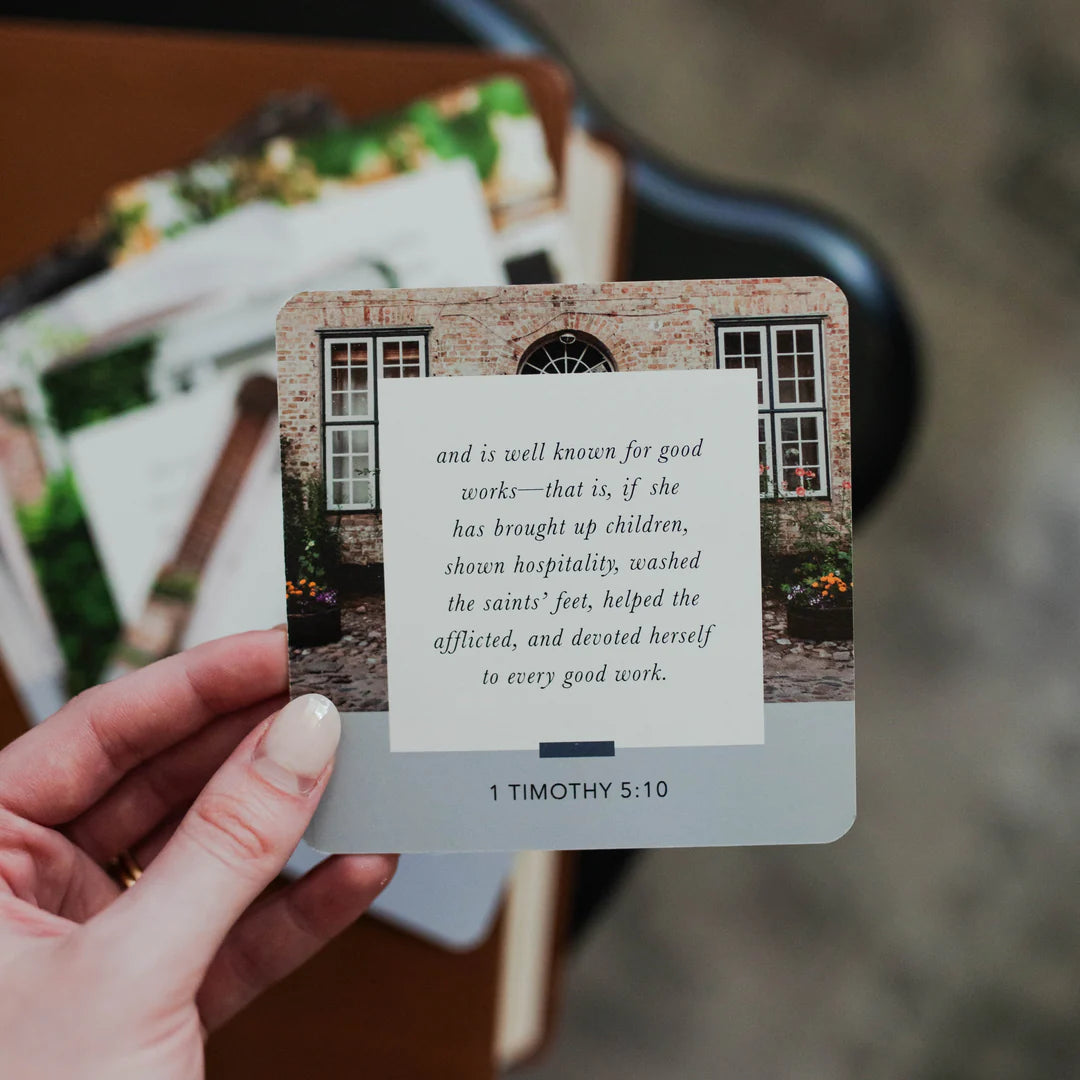 and is well known for good
works—that is, if she
has brought up children,
shown hospitality, washed
the saints’ feet, helped the
afflicted, and devoted herself
to every good work.
1 TIMOTHY 5:10